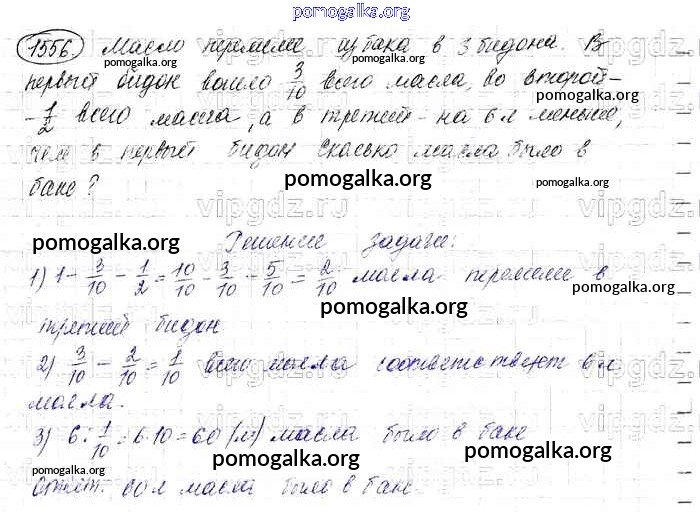 pomogalka.org
1556. Масло перелили из бака в 3 бидона. В
первый бидон вошло 3/10 всего масла, во второй -
- 1/2 всего масла, а в третий - на 6 л меньше,
чем в первый бидон. Сколько масла было в
баке?
pomogalka.org
pomogalka.org
Решение задачи:
1) 1 - 3/10 - 1/2 = 10/10 - 3/10 - 5/10 = 2/10 масла перелили в
pomogalka.org
pomogalka.org
третий бидон
2) 3/10 - 2/10 = 1/10 всего масла соответствует 6 л
pomogalka.org
масла.
3) 6 : 1/10 = 6·10 = 60 (л) масла было в баке
pomogalka.org
pomogalka.org
pomogalka.org
Ответ: 60 л масла было в баке.